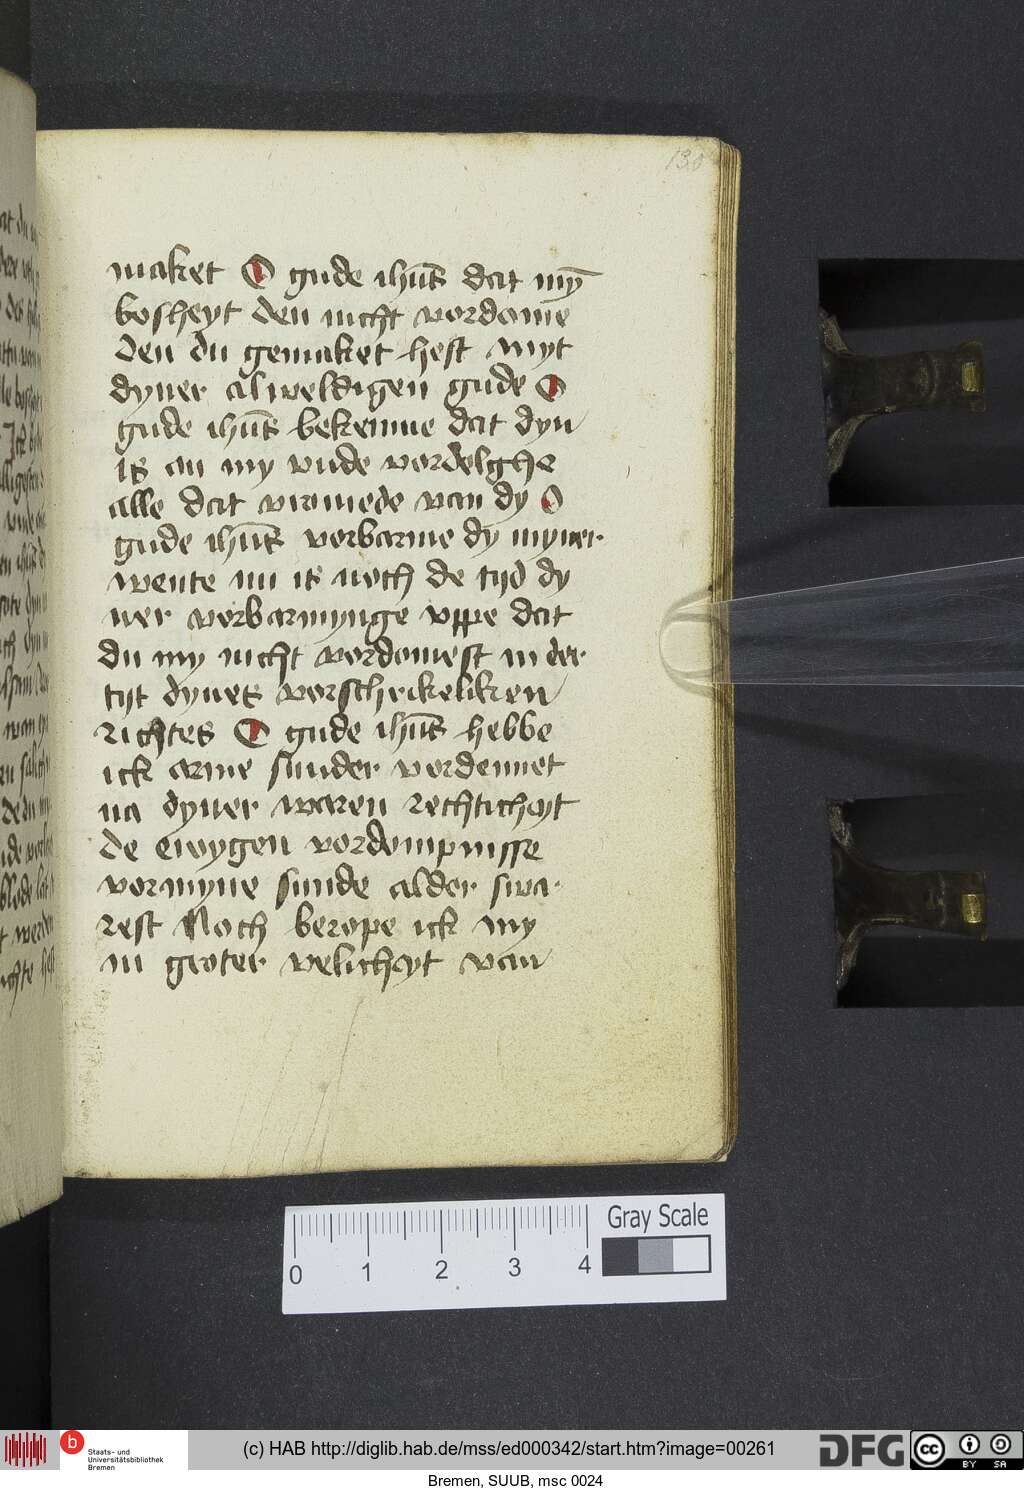 130
maket O gude ihūs dat mȳ
bosheyt den nicht vordome
den du gemaket hest myt
dyner alweldigen gude O
gude ihūs bekenne dat dyn
is an my vnde vordelghe
alle dat vromede van dy O
gude ihūs vorbarme dy myner
wente nu is noch de tijd dy
ner vorbarmynge vppe dat
du my nicht vordomest in der
tijt dynes vorschrikeliken
richtes O gude ihūs hebbe
ick arme sunder vordennet
na dyner waren rechticheyt
de ewygen vordompnisse
vor myne sunde alder swa
rest Noch berope ick my
in groter velicheyt van
Gray Scale
0 1 2 3 4
b Staats- und
Universitätsbibliothek
Bremen
(c) HAB http://diglib.hab.de/mss/ed000342/start.htm?image=00261
DFG cc BY SA
Bremen, SUUB, msc 0024